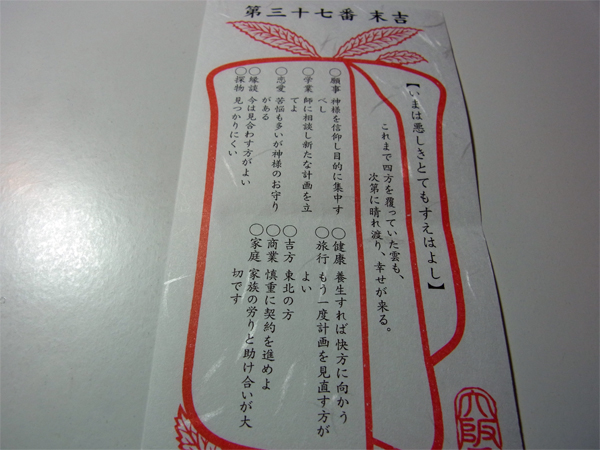 第三十七番 末吉
【いまは悪しきとてもすえはよし】
これまで四方を覆っていた雲も、
次第に晴れ渡り、幸せが来る。
○願事 神様を信仰し目的に集中す
べし
○学業 師に相談し新たな計画を立
てよ
○恋愛 苦悩も多いが神様のお守り
がある
○縁談 今は見合わす方がよい
○探物 見つかりにくい
○健康 養生すれば快方に向かう
○旅行 もう一度計画を見直す方が
よい
○吉方 東北の方
○商業 慎重に契約を進めよ
○家庭 家族の労りと助け合いが大
切です
大阪